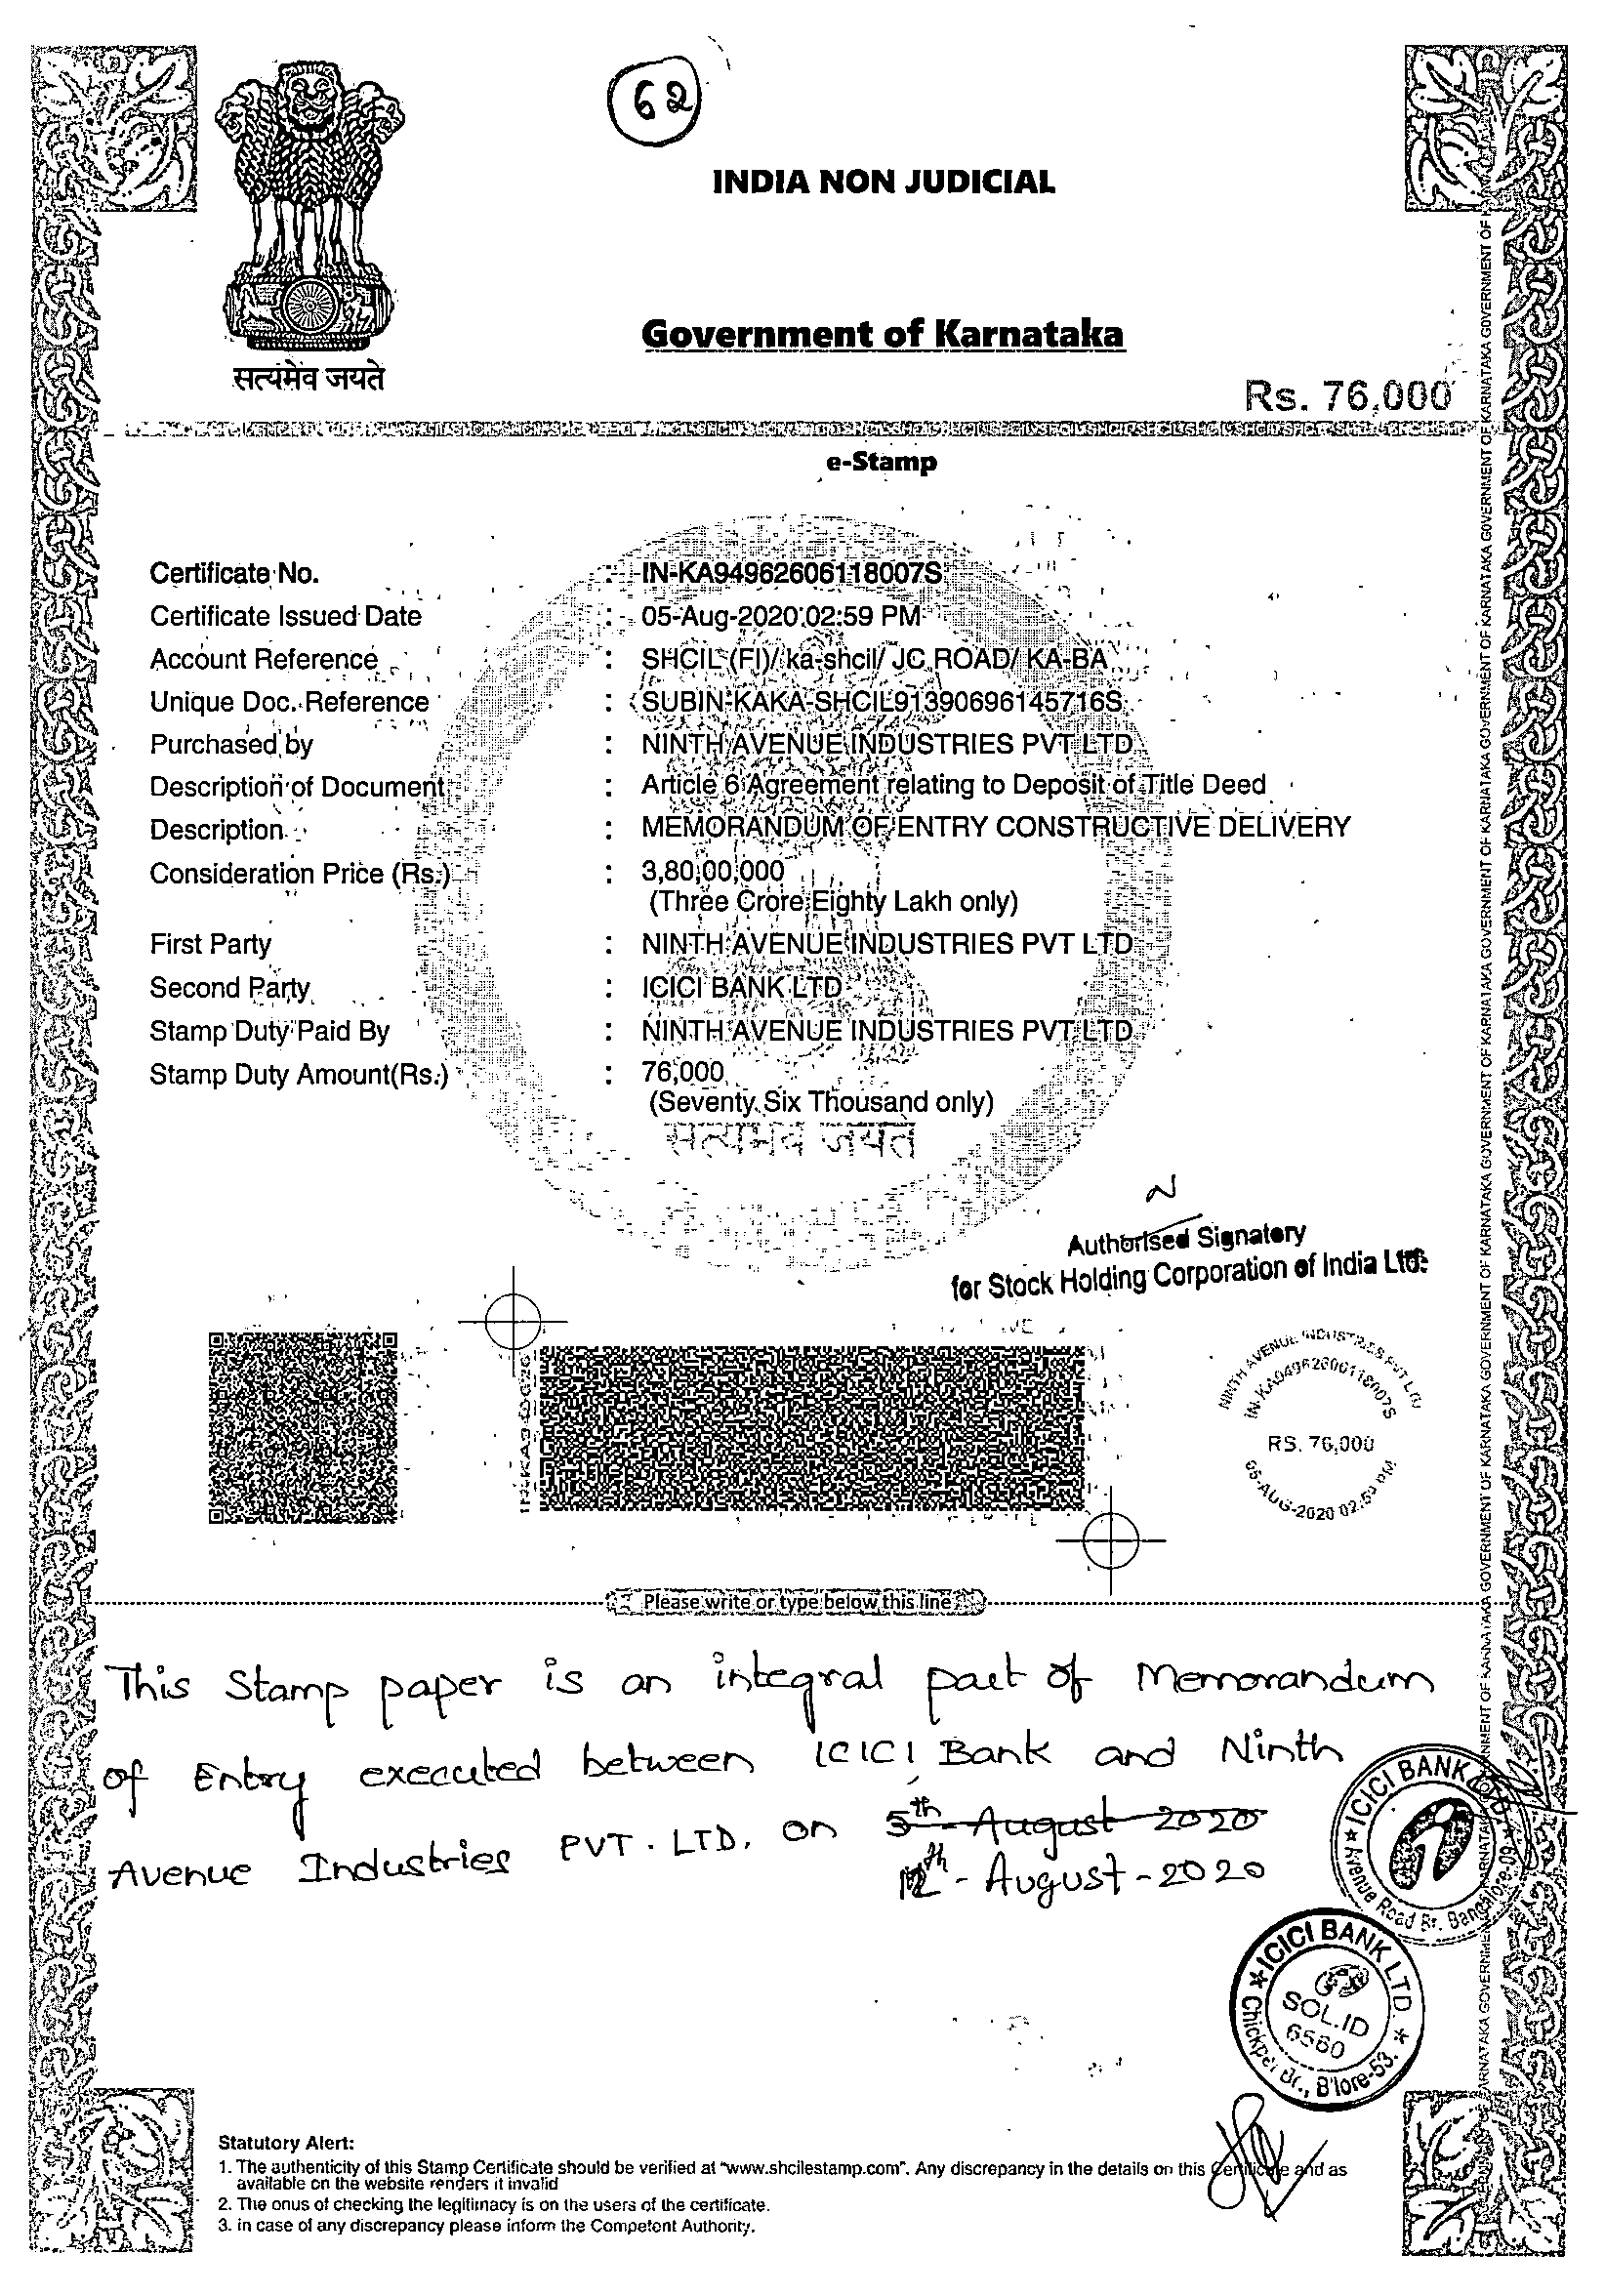 62
INDIA NON JUDICIAL
Government of Karnataka
सत्यमेव जयते
Rs. 76,000
e-Stamp
Certificate No. : IN-KA94962606118007S
Certificate Issued Date : 05-Aug-2020 02:59 PM
Account Reference : SHCIL (FI)/ ka-shcil/ JC ROAD/ KA-BA
Unique Doc. Reference : SUBIN-KAKA-SHCIL91390696145716S
Purchased by : NINTH AVENUE INDUSTRIES PVT LTD
Description of Document : Article 6 Agreement relating to Deposit of Title Deed
Description : MEMORANDUM OF ENTRY CONSTRUCTIVE DELIVERY
Consideration Price (Rs.) : 3,80,00,000
(Three Crore Eighty Lakh only)
First Party : NINTH AVENUE INDUSTRIES PVT LTD
Second Party : ICICI BANK LTD
Stamp Duty Paid By : NINTH AVENUE INDUSTRIES PVT LTD
Stamp Duty Amount(Rs.) : 76,000
(Seventy Six Thousand only)
सत्यमेव जयते
Authorised Signatory
for Stock Holding Corporation of India Ltd.
NINTH AVENUE INDUSTRIES PVT LTD
IN-KA94962606118007S
RS. 76,000
05-AUG-2020 02:59 PM
Please write or type below this line
This Stamp paper is an integral part of Memorandum
of Entry executed between ICICI Bank and Ninth
Avenue Industries PVT. LTD. on 5th August 2020
12th - August - 2020
ICICI BANK LTD
Avenue Road Br. Bangalore-09
ICICI BANK LTD.
SOL.ID
6560
Chickpet Br., B'lore-53.
Statutory Alert:
1. The authenticity of this Stamp Certificate should be verified at "www.shcilestamp.com". Any discrepancy in the details on this Certificate and as
available on the website renders it invalid
2. The onus of checking the legitimacy is on the users of the certificate.
3. in case of any discrepancy please inform the Competent Authority.